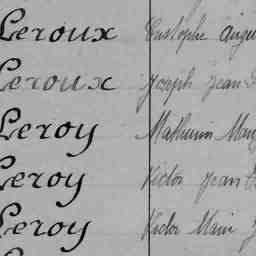 Leroux Custophe Augu
Leroux Joseph Jean
Leroy Mathurin Marg
Leroy Victor Jean
Leroy Victor Marie J